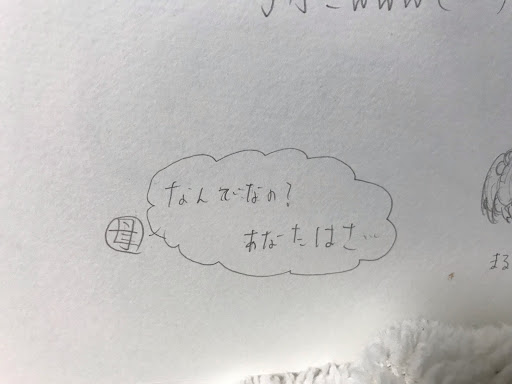 なんでなの?
あなたはさ…
母
まる